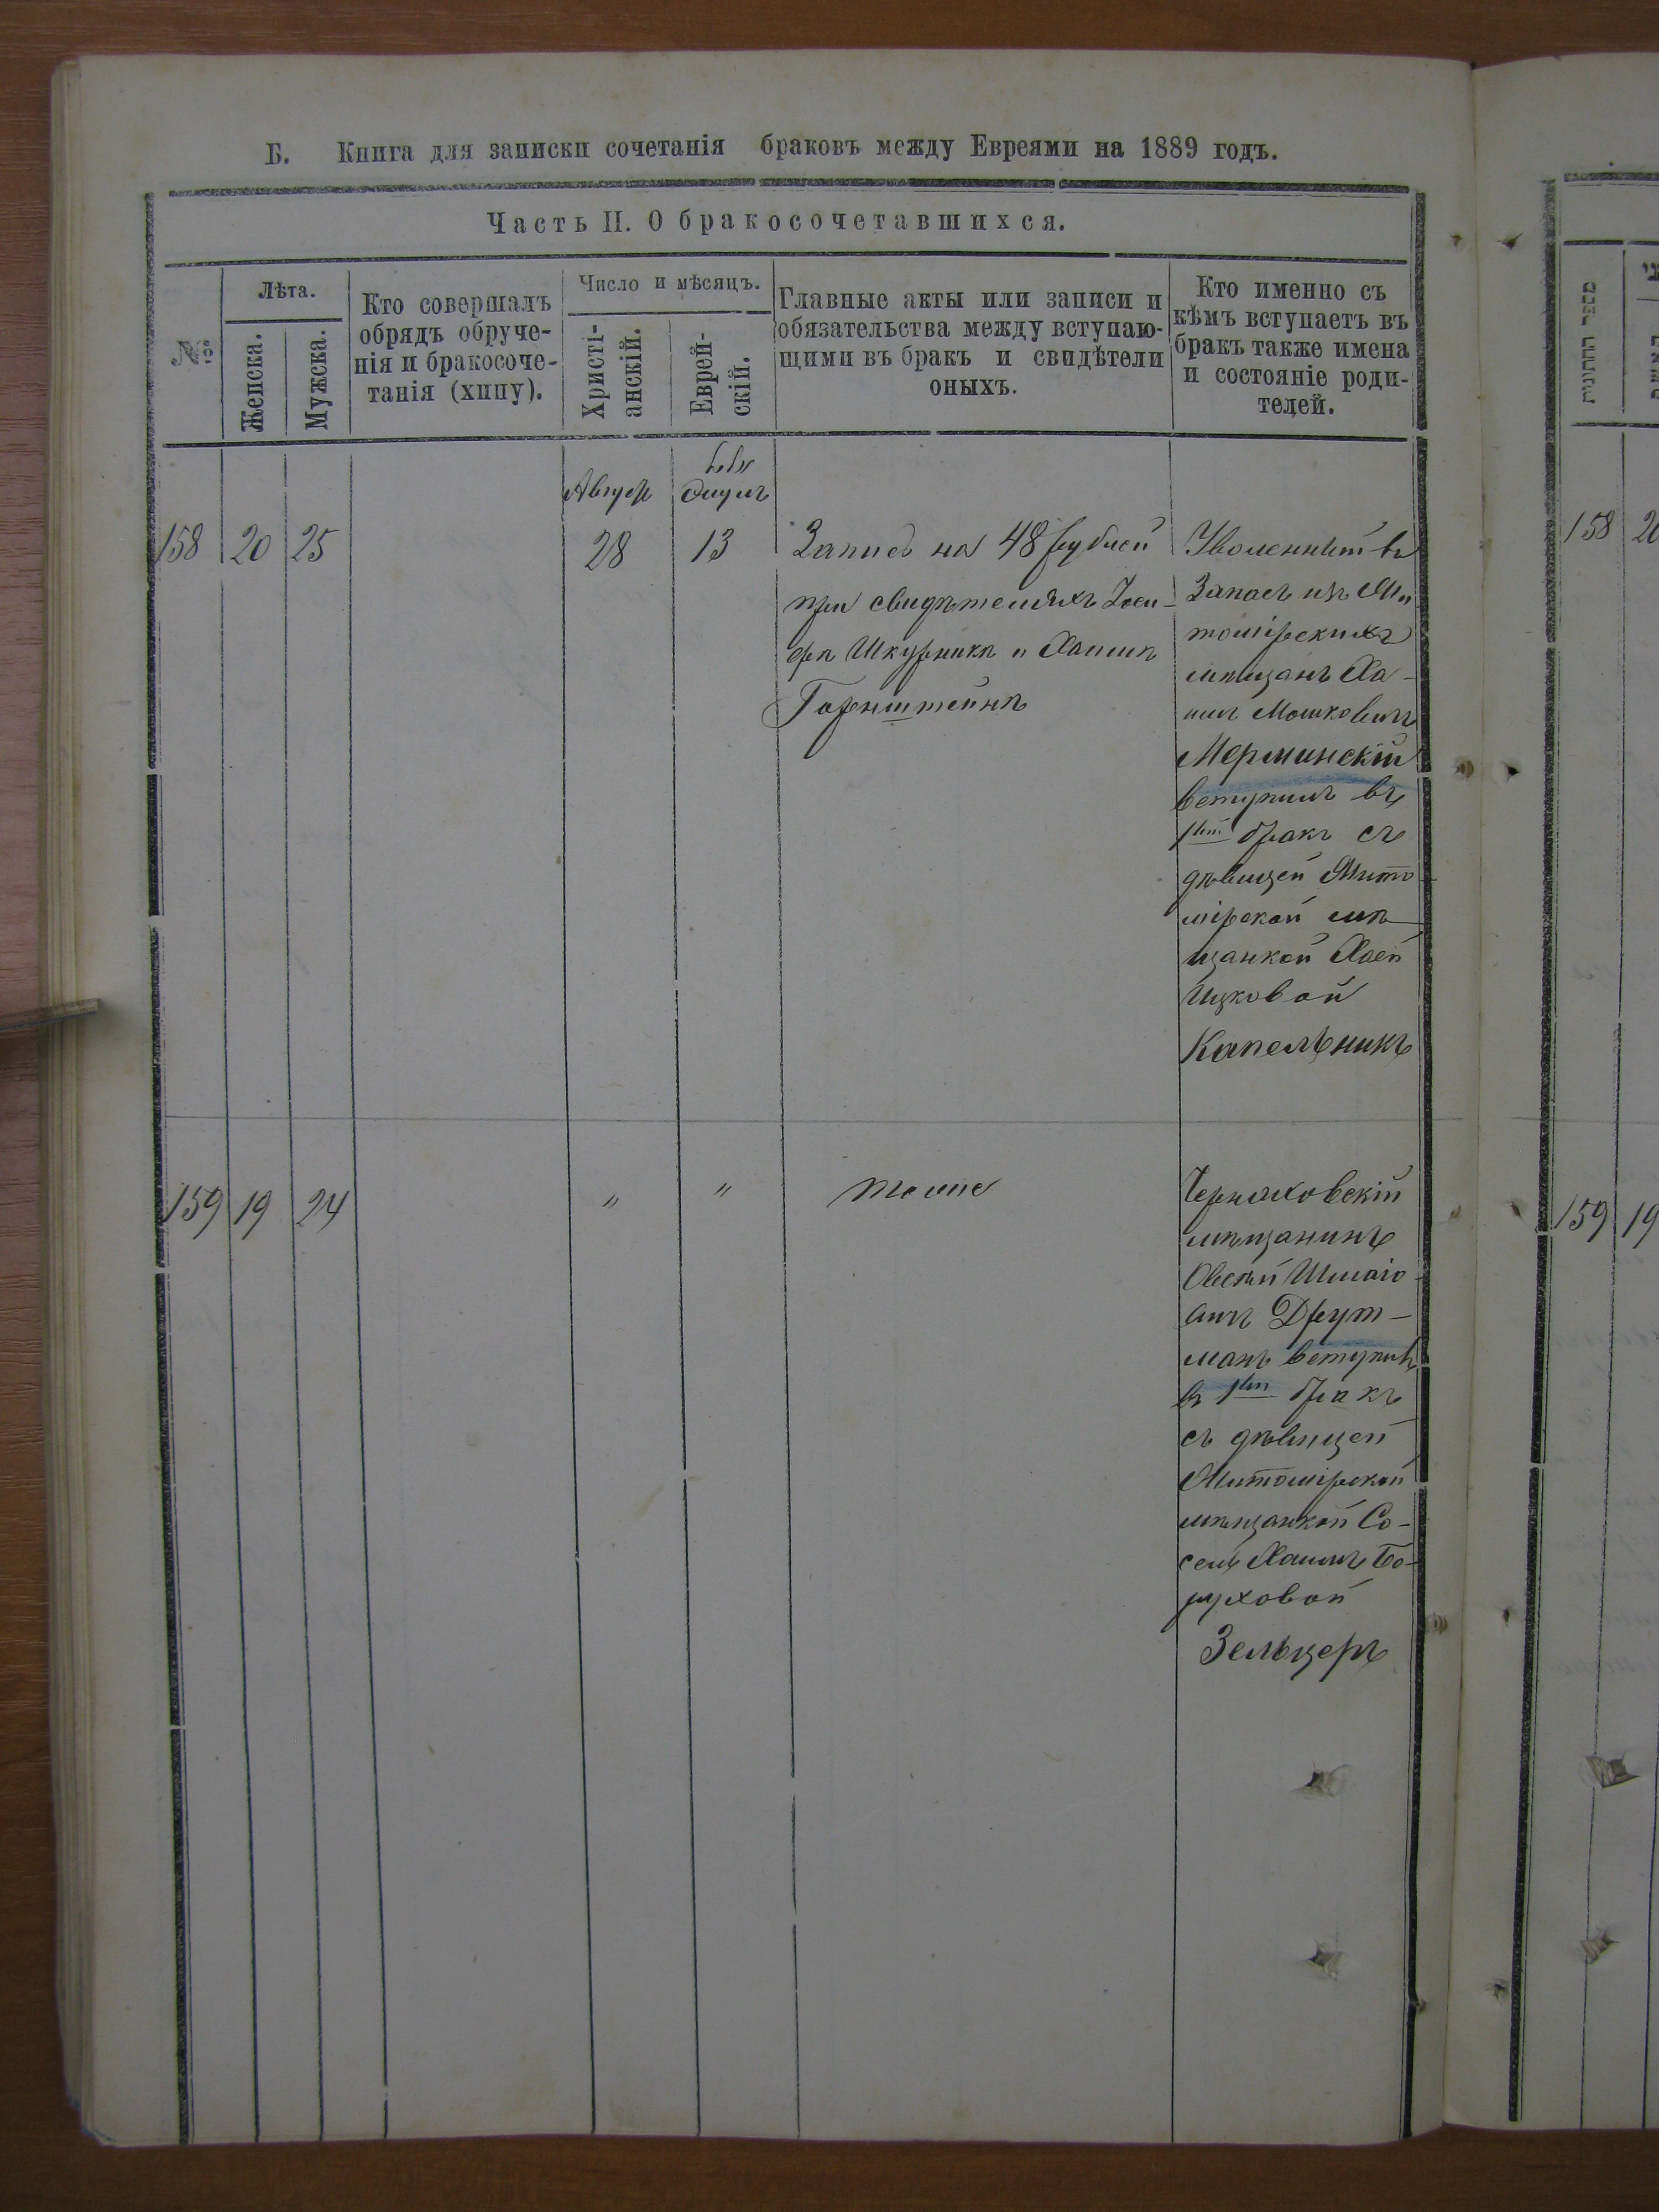 Б. Книга для записки сочетанія браковъ между Евреями на 1889 годъ.
Часть II. О бракосочетавшихся.
№
Лѣта.
Женска.
Мужска.
Кто совершалъ
обрядъ обруче-
нія и бракосоче-
танія (хипу).
Число и мѣсяцъ.
Христі-
анскій.
Еврей-
скій.
Главные акты или записи и
обязательства между вступаю-
щими въ бракъ и свидѣтели
оныхъ.
Кто именно съ
кѣмъ вступаетъ въ
бракъ также имена
и состояніе роди-
телей.
מספר החתונות
Август
Элулъ
158 20 25 28 13
Запись на 48 рублей
при свидѣтеляхъ Іоси-
фѣ Шкурникѣ и Хаимѣ
Горенштейнѣ
Уволенный въ
Запасъ изъ Жи
томірскихъ
мѣщанъ Ха-
имъ Мошковичъ
Мерминскій
вступилъ въ
1ый бракъ съ
дѣвицей Жито
мірской мѣ
щанкой Хаей
Ицковой
Капельникъ
158 20
159 19 24 " "
тоже
Черняховскій
мѣщанинъ
Овсей Шмаіо-
вичъ Друт-
манъ вступилъ
въ 1ый бракъ
съ дѣвицей
Житомірской
мѣщанкой Со-
сей Хаимъ Бо-
руховой
Зельцеръ
159 19